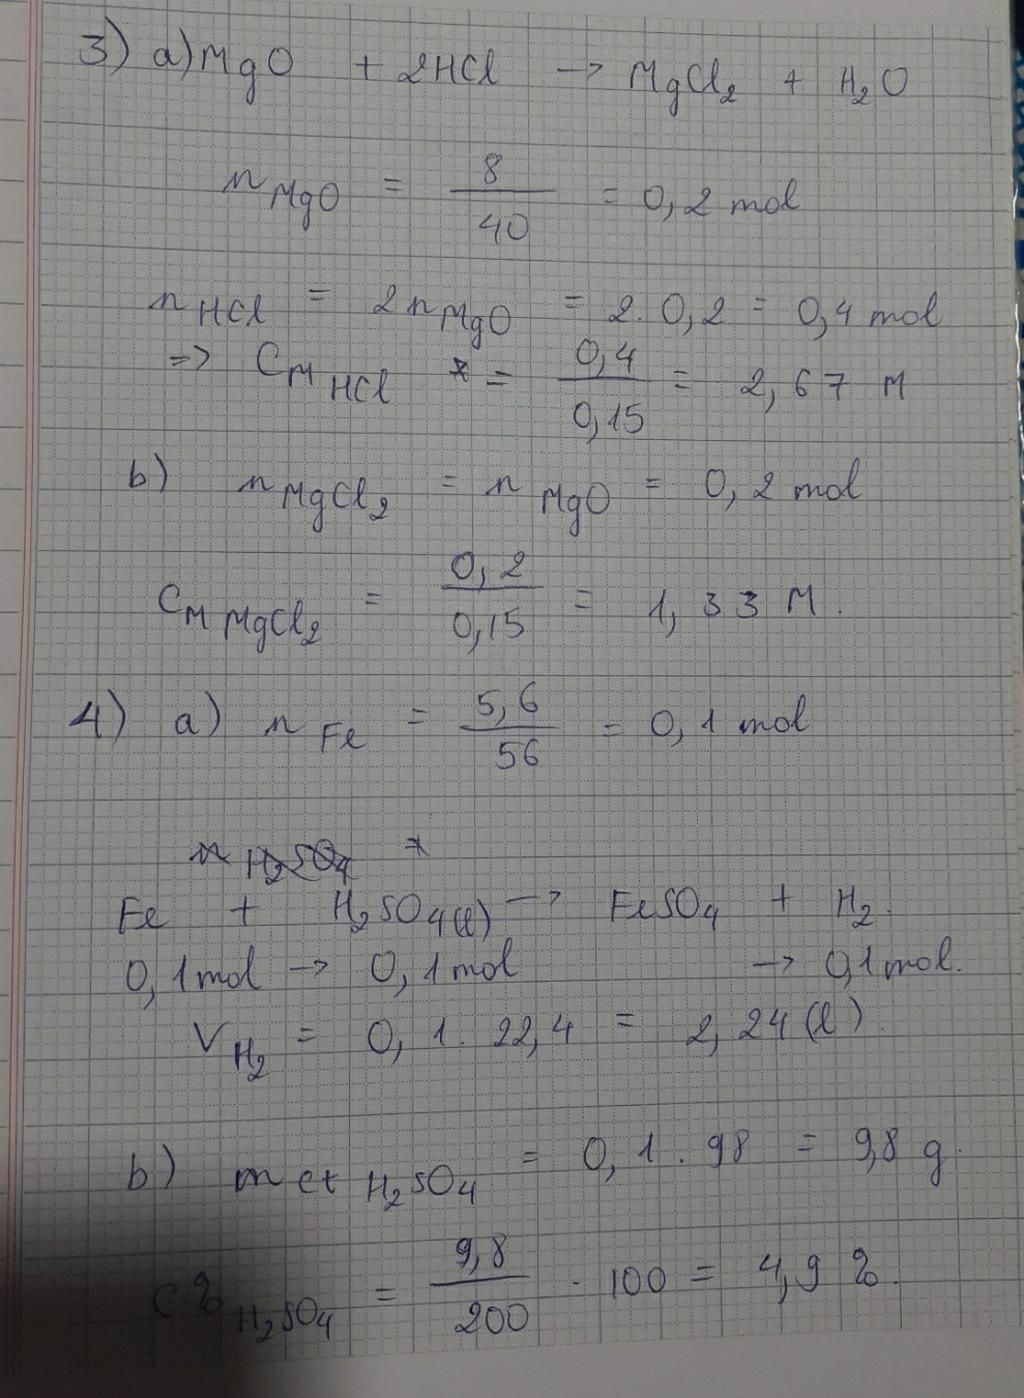 3) a) MgO + 2HCl → MgCl2 + H2O
nMgO = 8/40 = 0,2 mol
nHCl = 2nMgO = 2.0,2 = 0,4 mol
=> CM HCl = 0,4/0,15 = 2,67 M
b) nMgCl2 = nMgO = 0,2 mol
CM MgCl2 = 0,2/0,15 = 1,33 M.
4) a) nFe = 5,6/56 = 0,1 mol
Fe + H2SO4(l) → FeSO4 + H2.
0,1mol → 0,1mol → 0,1mol.
VH2 = 0,1.22,4 = 2,24 (l).
b) mct H2SO4 = 0,1.98 = 9,8 g.
C% H2SO4 = 9,8/200 . 100 = 4,9 %.